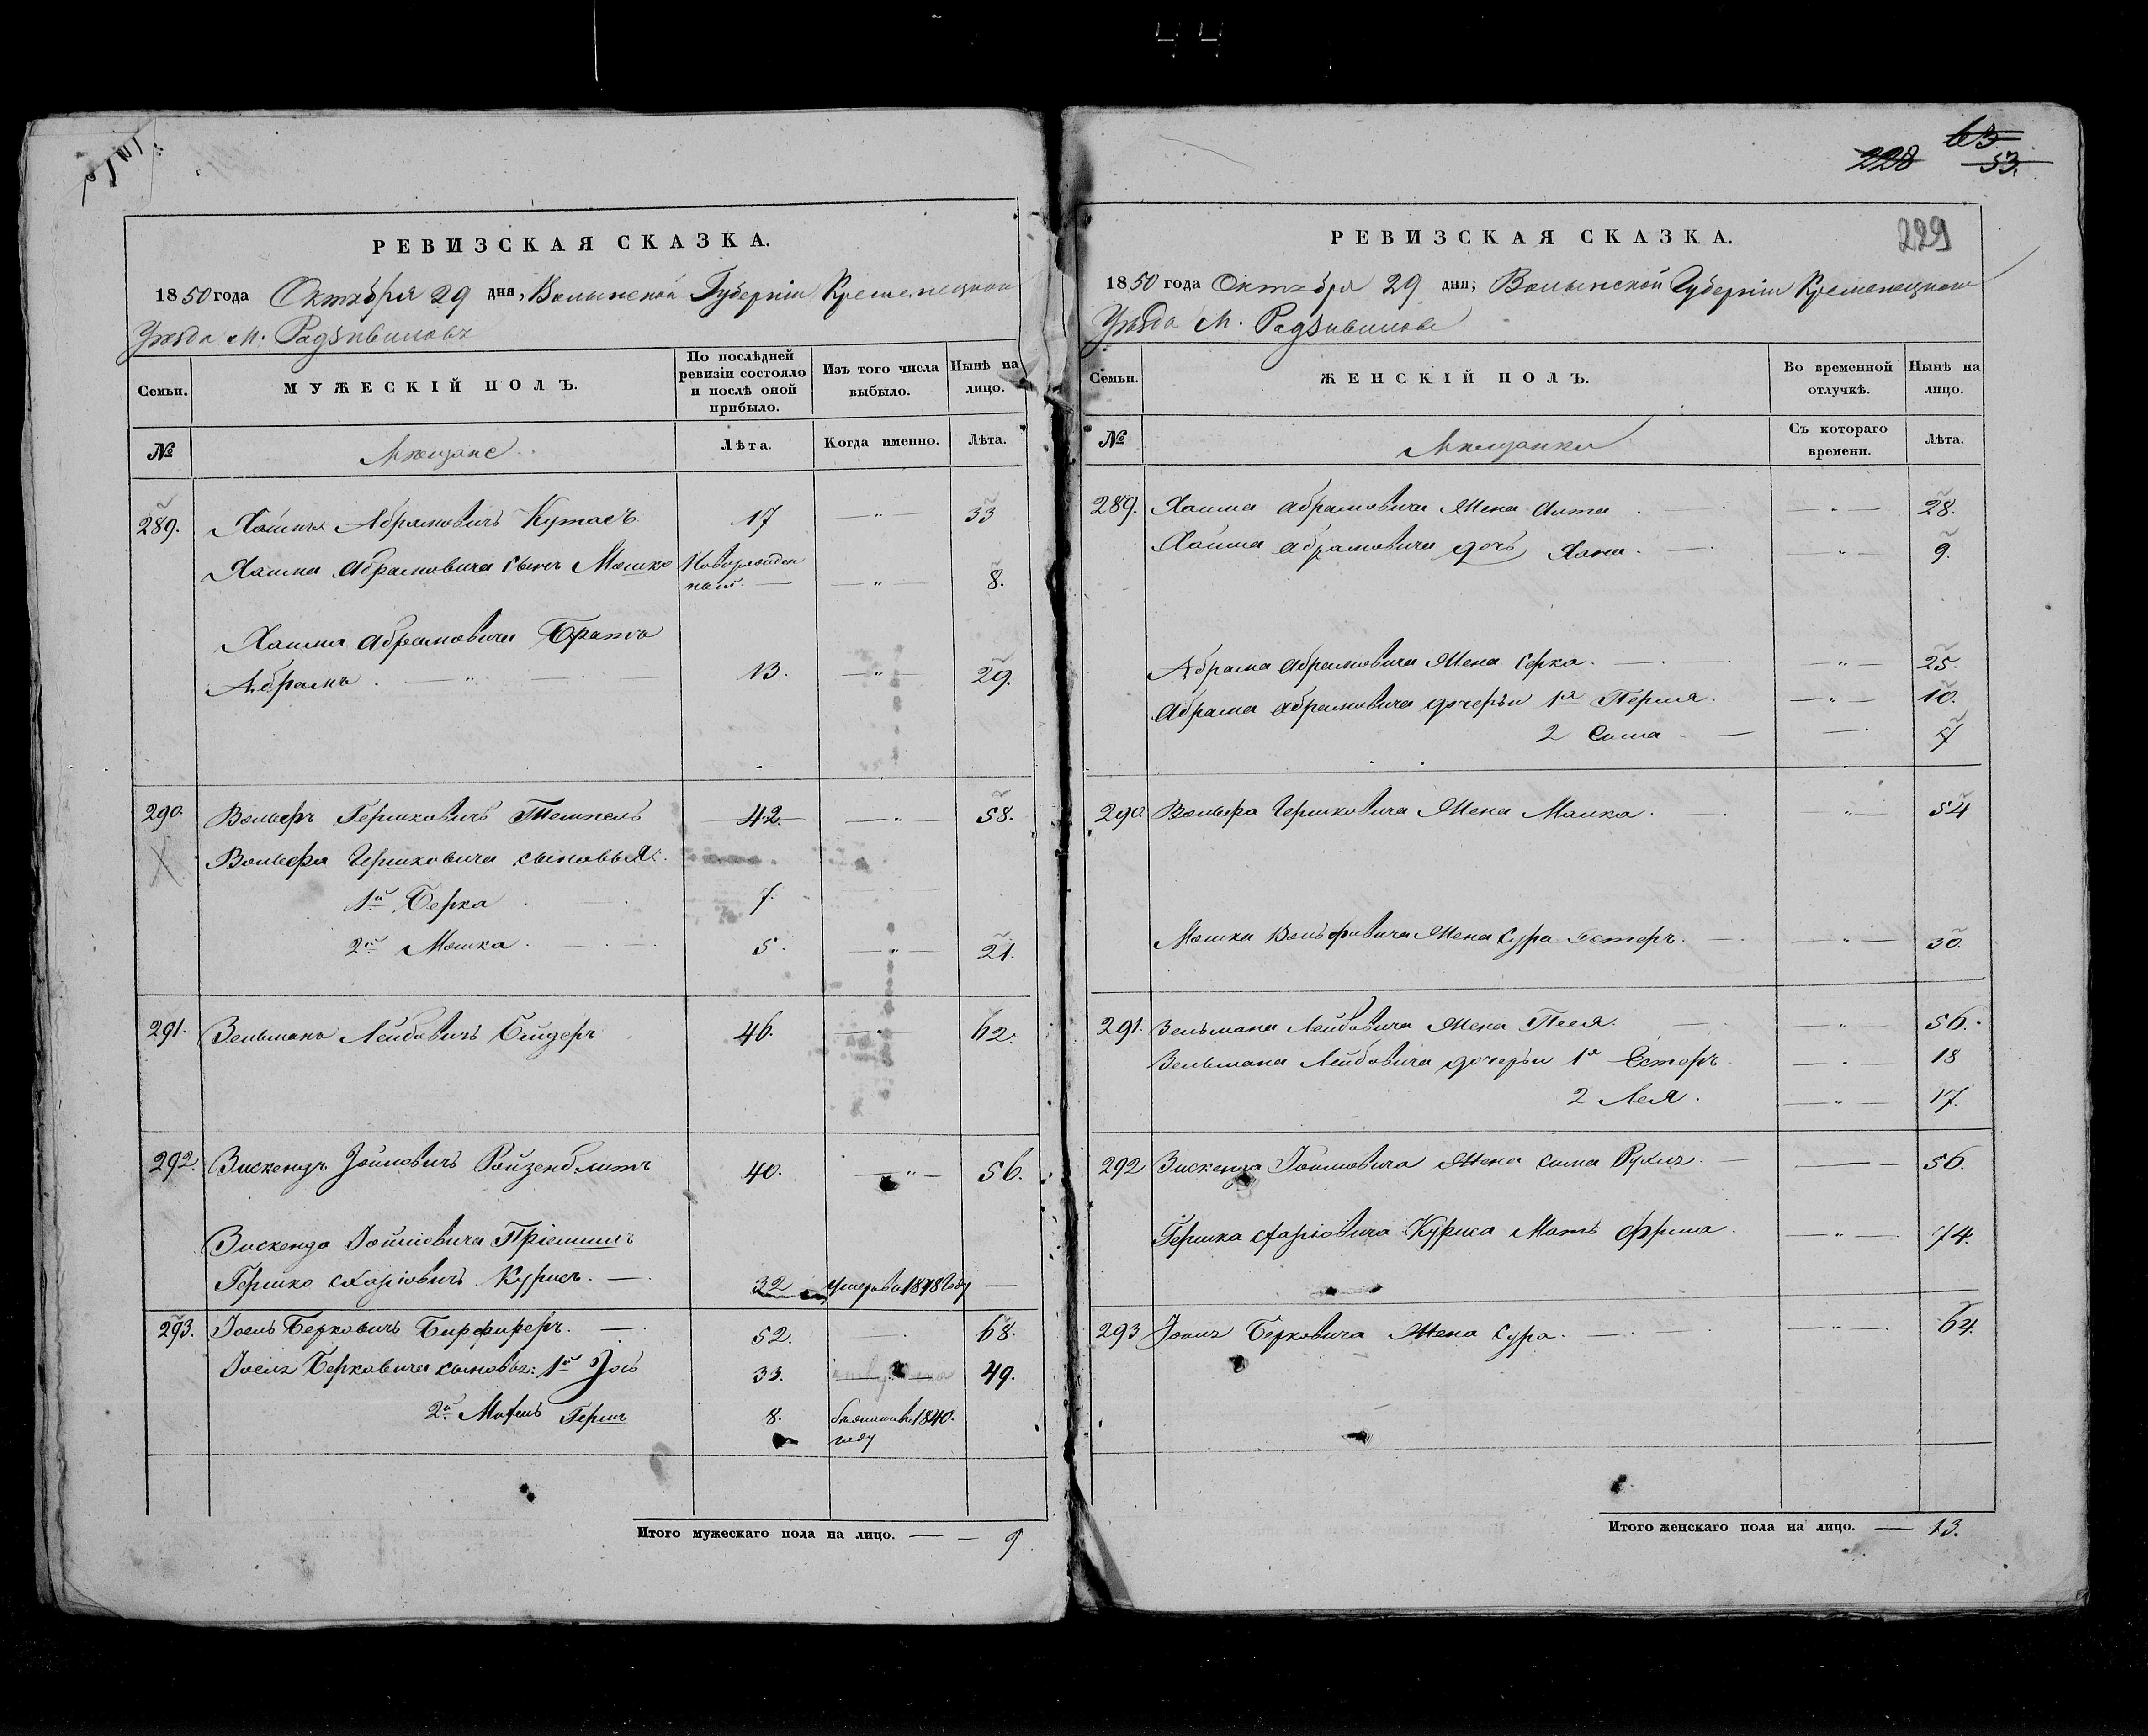 РЕВИЗСКАЯ СКАЗКА.
1850 года Октября 29 дня, Волынской Губерніи Кременецкого
Уѣзда М. Радзивиловъ
Семьи.
МУЖЕСКІЙ ПОЛЪ.
По послѣдней ревизіи состояло и послѣ оной прибыло.
Изъ того числа выбыло.
Нынѣ на лицо.
№
Мѣщане
Лѣта.
Когда именно.
Лѣта.
289. Хаимъ Абрамовичъ 17 — " — 33
Хаима Абрамовича сынъ Мошко Новорожден
ный — — " — 8.
Хаима Абрамовича Братъ
Абрамъ. — " — 13. — " — 29.
290. Вольфъ Гершковичъ Темпель 42. — " — 58.
Вольфа Гершковича сыновья:
1й Берко 7.
2й Мошка 5. — " — 21.
291. Зельманъ Лейбовичъ 46. — " — 62.
292. Зискендъ Ройзенблитъ 40. — " — 56.
Зискенда Пріемышъ
Гершко 32 умеръ въ 1848 году —
293. Іоель Берковичъ 52. 68.
Іоеля Берковича сыновья: 1й 33. 49.
2й Гершъ 8. 1840.
году
Итого мужескаго пола на лицо. — — 9
63
228 53.
РЕВИЗСКАЯ СКАЗКА.
229
1850 года Октября 29 дня, Волынской Губерніи Кременецкого
Уѣзда М. Радзивилова
Семьи.
ЖЕНСКІЙ ПОЛЪ.
Во временной отлучкѣ.
Нынѣ на лицо.
№
Мѣщанки
Съ котораго времени.
Лѣта.
289. Хаима Абрамовича Жена Алта — " — 28.
Хаима Абрамовича дочь Хана. — — " — 9.
Абрама Абрамовича Жена Сорка. — — " — 25.
Абрама Абрамовича дочери 1я Перля. — " — 10.
2 Сима — — 7
290. Вольфа Гершковича Жена Малка. — " — 54
Мошка Вольфовича Жена Сура Естеръ. — — " — 30.
291. Зельмана Лейбовича Жена Песя. — " — 56.
Зельмана Лейбовича дочери 1я Естеръ — " — 18
2 Лея. — " — 17.
292 Зискенда Жена Сима Рухля. — — 56.
Гершка Мать Фрима. — " — 74.
293 Берковича Жена Сура. — — " — 64.
Итого женскаго пола на лицо. — 13.